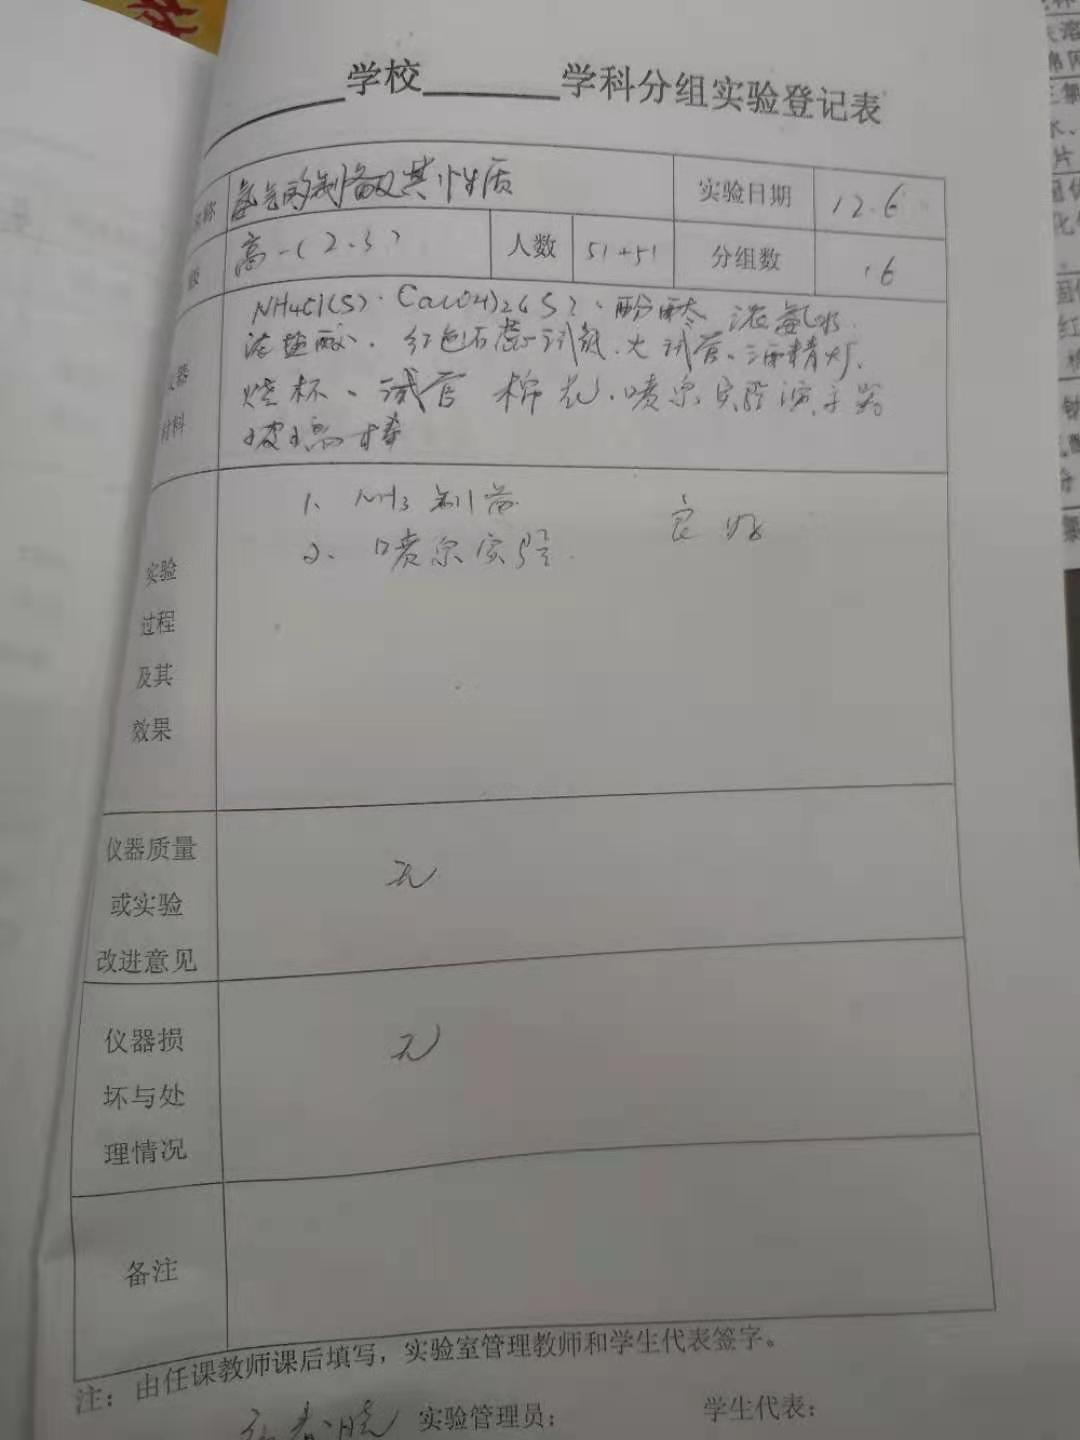 学校 学科分组实验登记表
名称 氨气的制备及其性质 实验日期 12.6
级 高一(2.3) 人数 51+51 分组数 16
仪器
材料
NH4Cl(S)、Ca(OH)2(S)、酚酞、浓氨水、
浓盐酸、红色石蕊试纸、大试管、酒精灯、
烧杯、试管 棉花、喷泉实验演示器
玻璃棒
实验
过程
及其
效果
1、NH3制备 良好
2、喷泉实验
仪器质量
或实验
改进意见
无
仪器损
坏与处
理情况
无
备注
注：由任课教师课后填写，实验室管理教师和学生代表签字。
春晓 实验管理员： 学生代表：